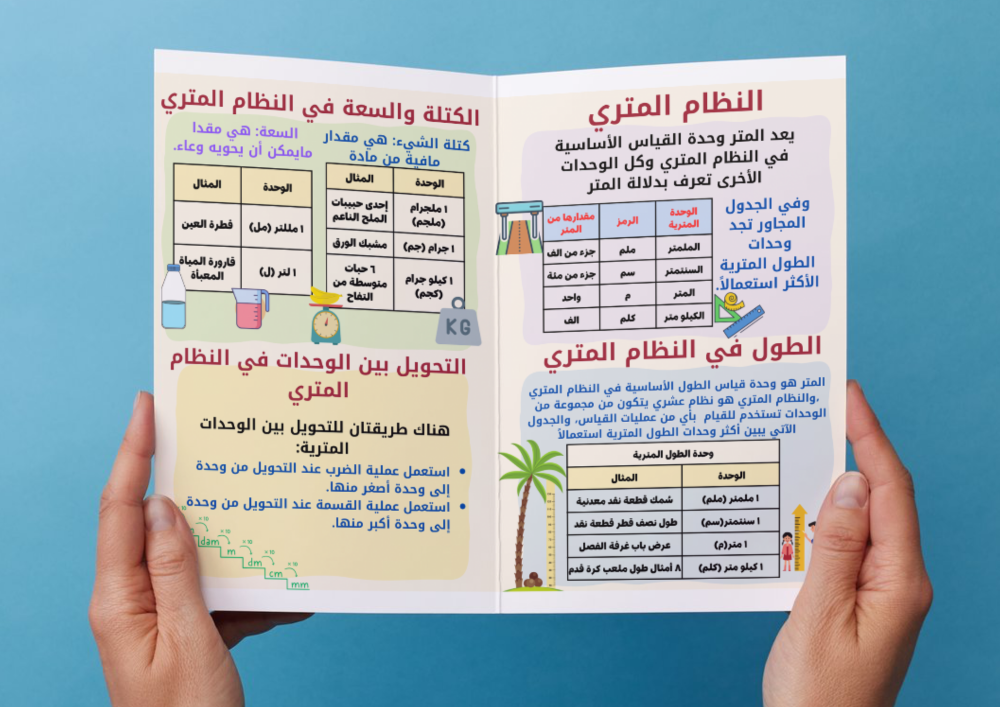 النظام المتري
يعد المتر وحدة القياس الأساسية
في النظام المتري وكل الوحدات
الأخرى تعرف بدلالة المتر
وفي الجدول
المجاور تجد
وحدات
الطول المترية
الأكثر استعمالاً.
الوحدة المترية | الرمز | مقدارها من المتر
الملمتر | ملم | جزء من الف
السنتمتر | سم | جزء من مئة
المتر | م | واحد
الكيلو متر | كلم | الف
الطول في النظام المتري
المتر هو وحدة قياس الطول الأساسية في النظام المتري
،والنظام المتري هو نظام عشري يتكون من مجموعة من
الوحدات تستخدم للقيام بأي من عمليات القياس، والجدول
الآتي يبين أكثر وحدات الطول المترية استعمالاً
وحدة الطول المترية
الوحدة | المثال
١ ملمتر (ملم) | سُمك قطعة نقد معدنية
١ سنتمتر(سم) | طول نصف قطر قطعة نقد
١ متر(م) | عرض باب غرفة الفصل
١ كيلو متر (كلم) | ٨ أمثال طول ملعب كرة قدم
الكتلة والسعة في النظام المتري
كتلة الشيء: هي مقدار
مافية من مادة
الوحدة | المثال
١ ملجرام (ملجم) | إحدى حبيبات الملح الناعم
١ جرام (جم) | مشبك الورق
١ كيلو جرام (كجم) | ٦ حبات متوسطة من التفاح
السعة: هي مقدا
مايمكن أن يحويه وعاء.
الوحدة | المثال
١ مللتر (مل) | قطرة العين
١ لتر (ل) | قارورة المياة المعبأة
KG
التحويل بين الوحدات في النظام
المتري
هناك طريقتان للتحويل بين الوحدات
المترية:
• استعمل عملية الضرب عند التحويل من وحدة
إلى وحدة أصغر منها.
• استعمل عملية القسمة عند التحويل من وحدة
إلى وحدة أكبر منها.
dam
m
dm
cm
mm